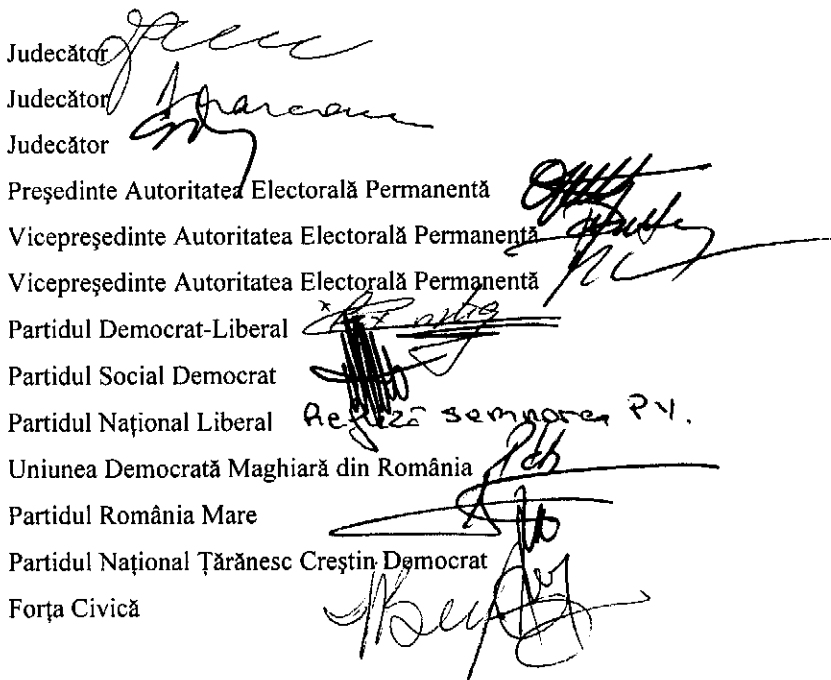 Judecător
Judecător
Judecător
Președinte Autoritatea Electorală Permanentă
Vicepreședinte Autoritatea Electorală Permanentă
Vicepreședinte Autoritatea Electorală Permanentă
Partidul Democrat-Liberal
Partidul Social Democrat
Partidul Național Liberal Refuză semnarea P.V.
Uniunea Democrată Maghiară din România
Partidul România Mare
Partidul Național Țărănesc Creștin Democrat
Forța Civică